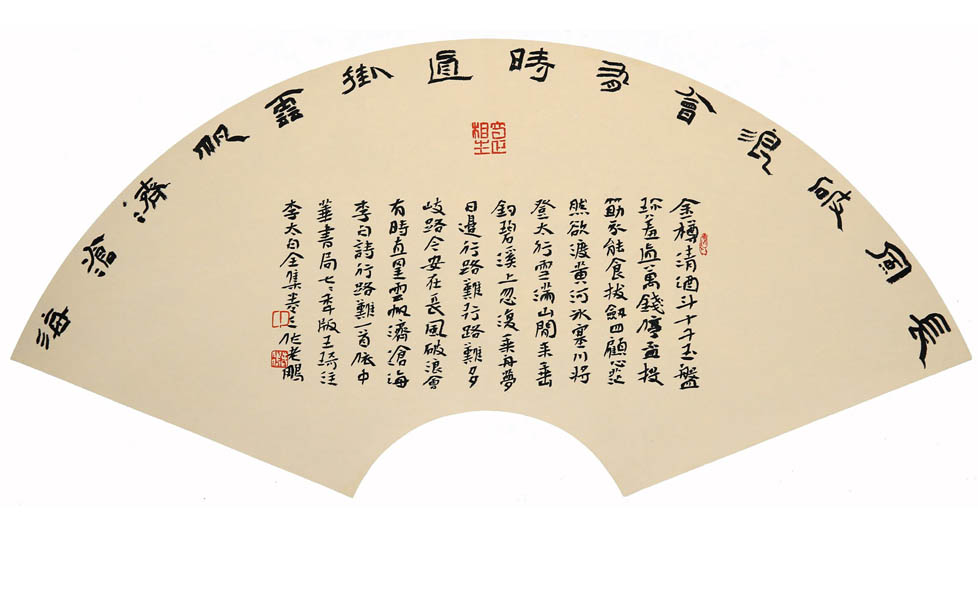 長風破浪會有時直掛雲帆濟滄海
金樽清酒斗十千玉盤
珎羞直萬錢停盃投
筯不能食拔劒四顧心茫
然欲渡黄河冰塞川將
登太行雪滿山閒來垂
釣碧溪上忽復乘舟夢
日邊行路難行路難多
岐路今安在長風破浪會
有時直罣雲帆濟滄海
李白詩行路難一首依中
華書局七七年版王琦注
李太白全集